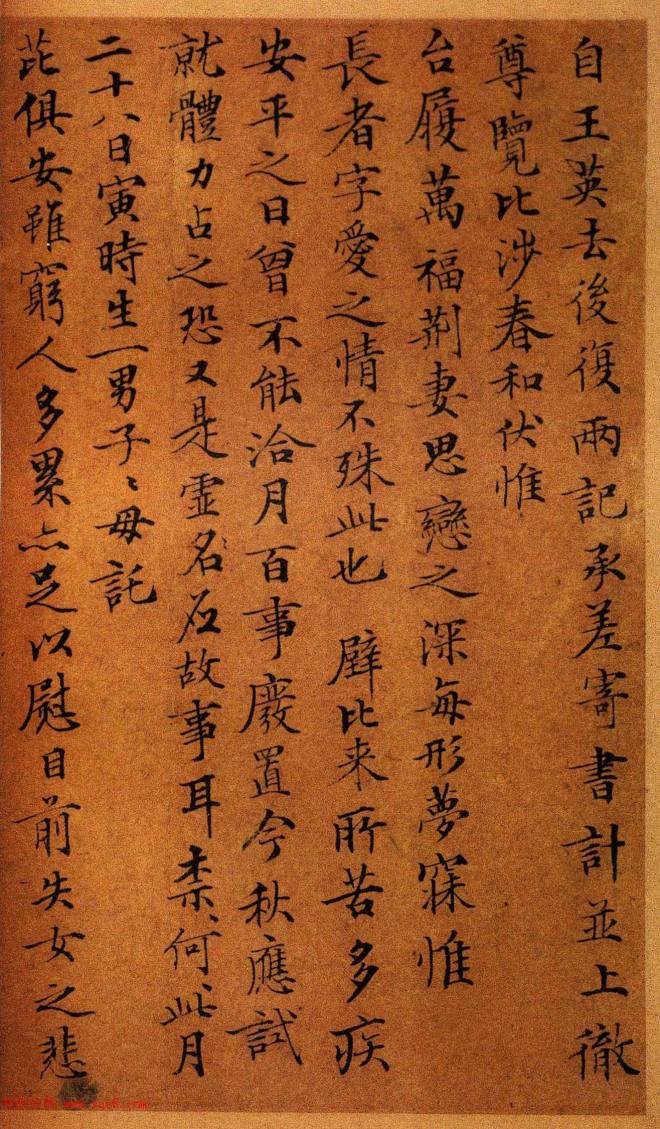 自王英去後復兩記承差寄書計並上徹
尊覽比涉春和伏惟
台履萬福荆妻思戀之深每形夢寐惟
長者字愛之情不殊此也 辟比来所苦多疾
安平之日曾不能洽月百事廢置今秋應試
就體力占之恐又是虚名应故事耳柰、何、此月
二十八日寅時生一男子、母託
芘俱安雖窮人多累亦足以慰目前失女之悲